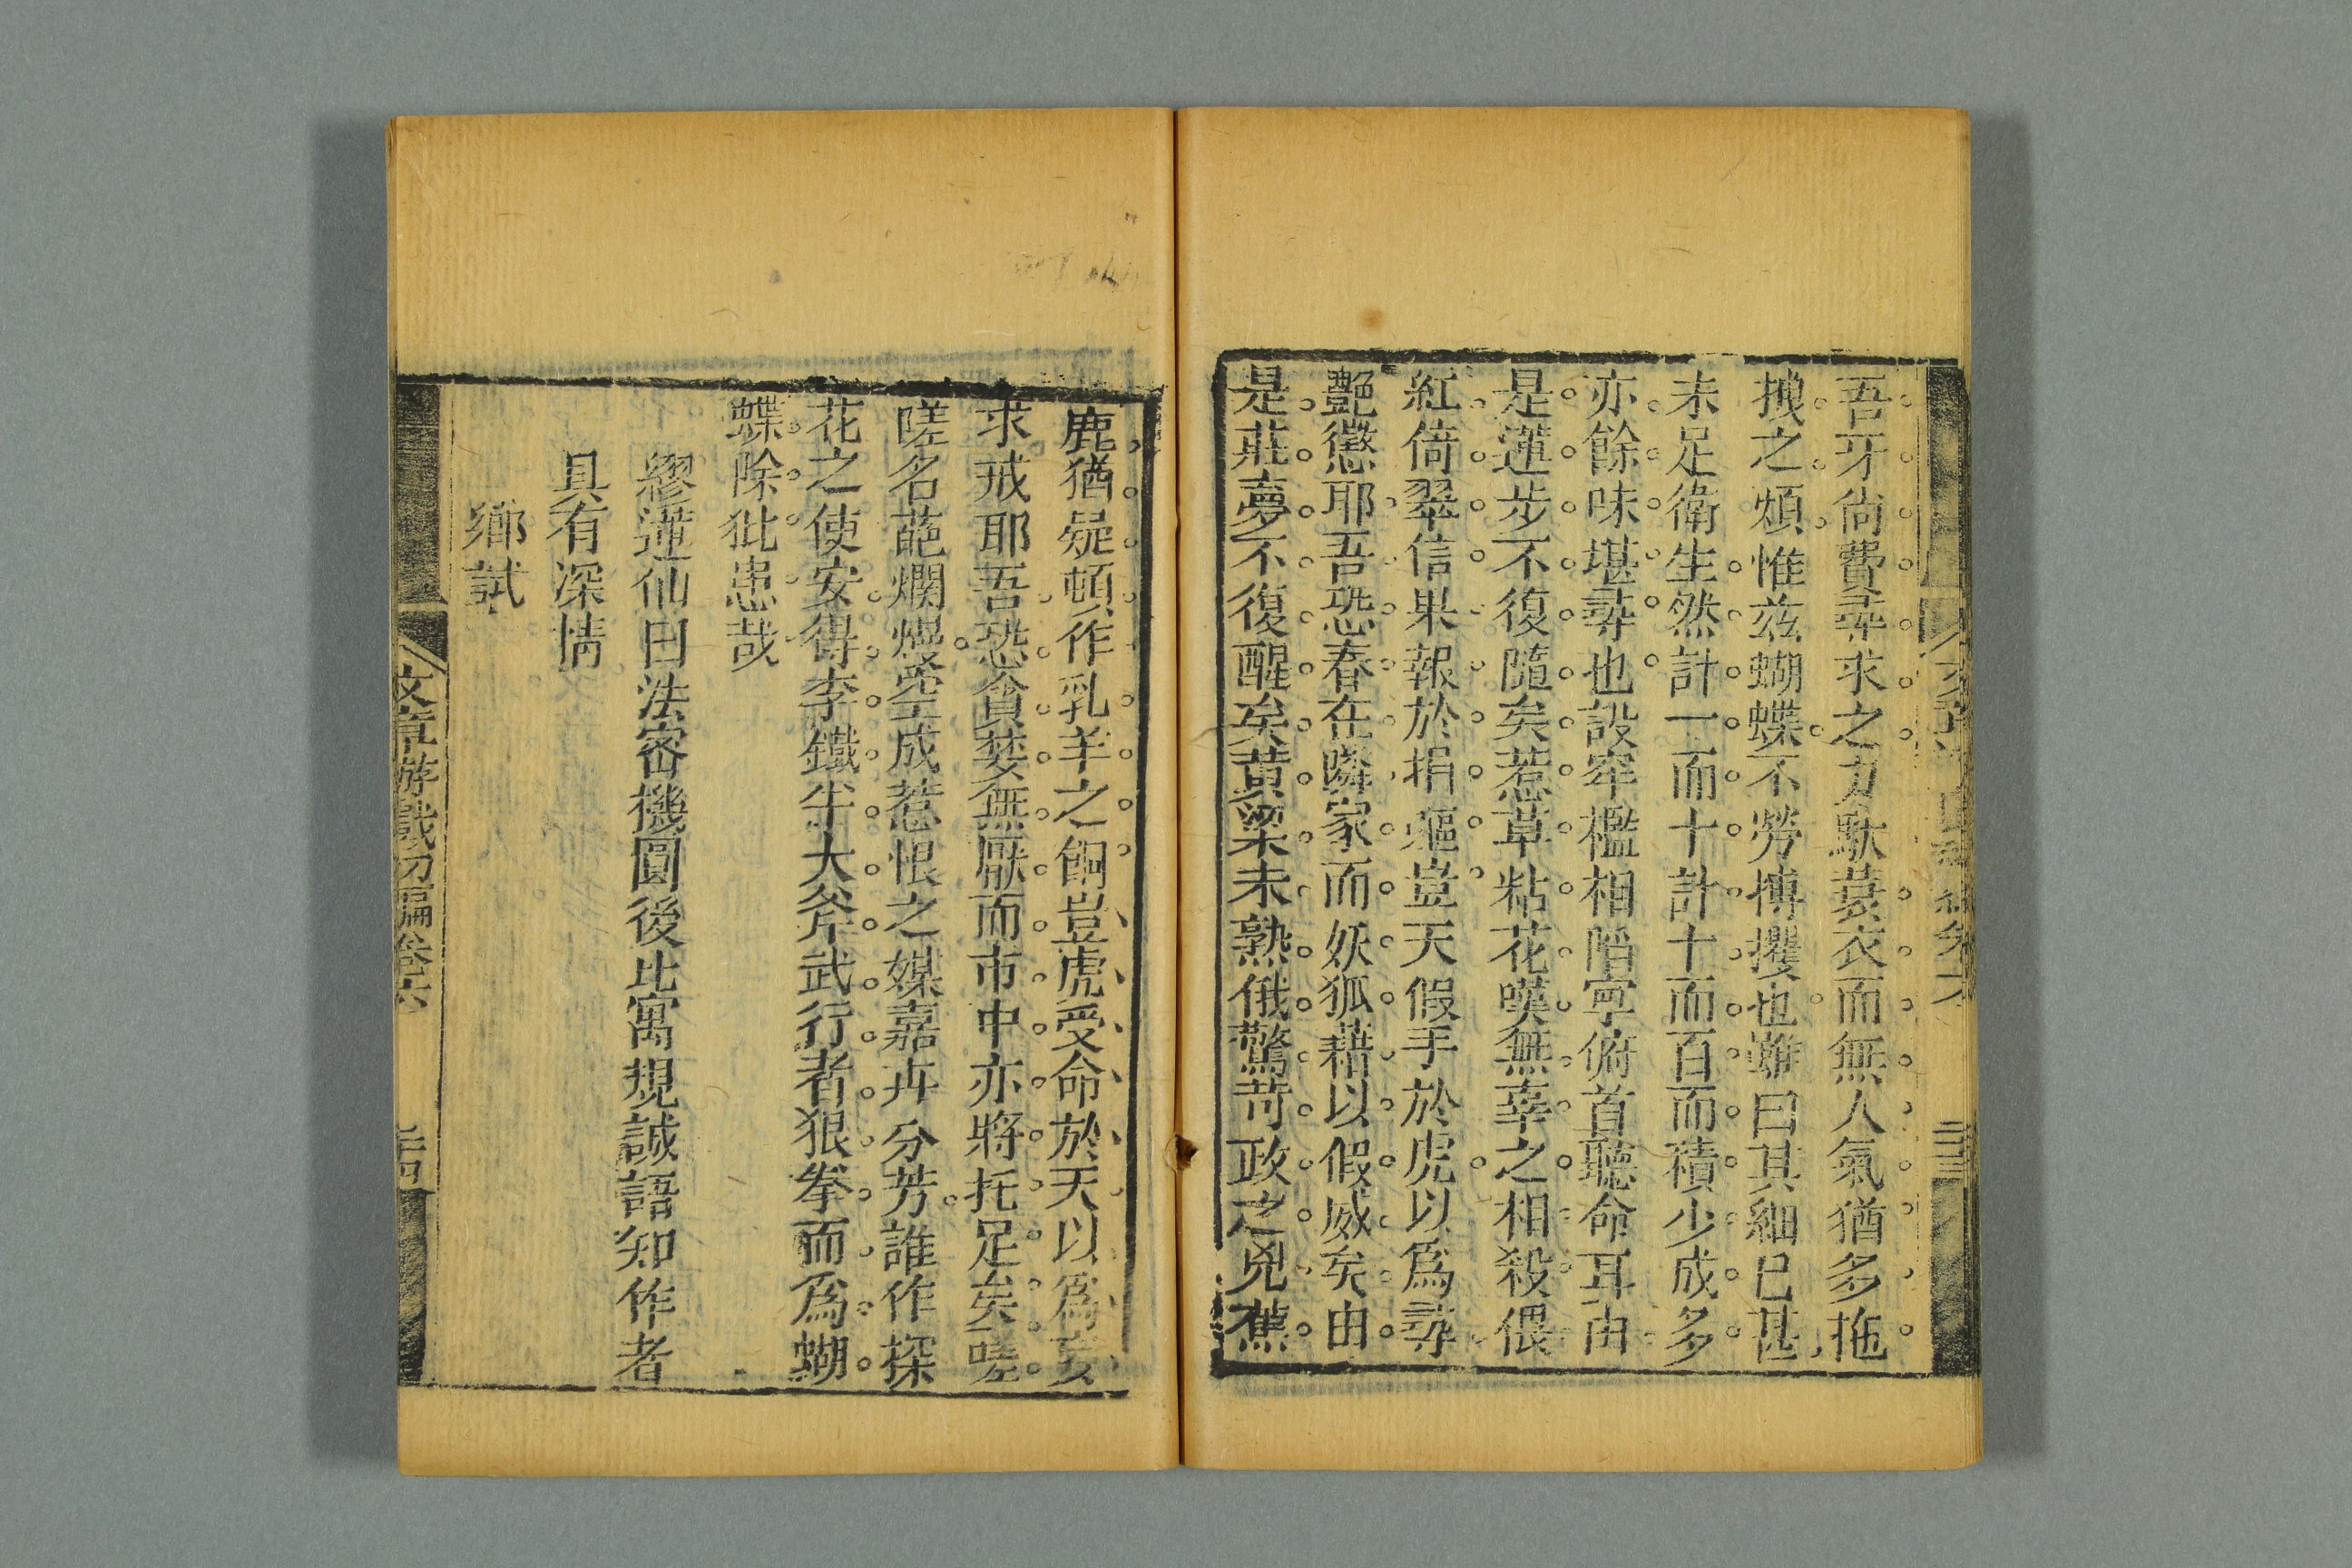 吾牙尙費尋求之力馱蓑衣而無人氣猶多拖
拽之煩惟茲蝴蝶不勞搏攫也雖曰其細已甚
未足衛生然計一而十計十而百而積少成多
亦餘味堪尋也設窂檻相隨寧俯首聽命耳由
是蓮步不復隨矣惹草粘花嘆無辜之相殺偎
紅倚翠信果報於捐軀豈天假手於虎以爲尋
艷懲耶吾恐春在隣家而妖狐藉以假威矣由
是莊夢不復醒矣黃粱未熟俄驚苛政之兇蕉
鹿猶疑頓作乳羊之餇豈虎受命於天以爲妄
求戒耶吾恐貪婪無厭而市中亦將托足矣嗟
嗟名葩爛熳空成惹恨之媒嘉卉分芳誰作探
花之使安得李鐵牛大斧武行者狠拳而爲蝴
蝶除玭患哉
繆蓮仙曰法密機圓後比寓規誠語知作者
具有深情
鄉試
文章游戲初編卷六
三四